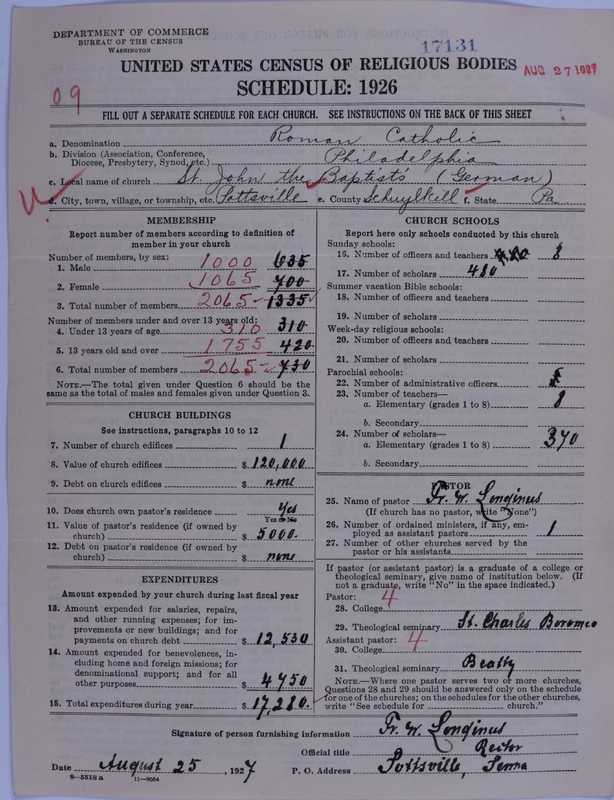 DEPARTMENT OF COMMERCE
BUREAU OF THE CENSUS
WASHINGTON
17131
UNITED STATES CENSUS OF RELIGIOUS BODIES
AUG 27 1927
SCHEDULE: 1926
09
FILL OUT A SEPARATE SCHEDULE FOR EACH CHURCH. SEE INSTRUCTIONS ON THE BACK OF THIS SHEET
a. Denomination Roman Catholic
b. Division (Association, Conference, Diocese, Presbytery, Synod, etc.) Philadelphia
c. Local name of church St. John the Baptist's (German)
d. City, town, village, or township, etc. Pottsville e. County Schuylkill f. State Pa.
MEMBERSHIP
Report number of members according to definition of
member in your church
Number of members, by sex:
1. Male 1000 635
2. Female 1065 700
3. Total number of members 2065 1335
Number of members under and over 13 years old:
4. Under 13 years of age 310 310
5. 13 years old and over 1755 420
6. Total number of members 2065 730
NOTE.—The total given under Question 6 should be the
same as the total of males and females given under Question 3.
CHURCH BUILDINGS
See instructions, paragraphs 10 to 12
7. Number of church edifices 1
8. Value of church edifices $ 120,000
9. Debt on church edifices $ none
10. Does church own pastor's residence? Yes
Yes or No
11. Value of pastor's residence (if owned by
church) $ 5000.
12. Debt on pastor's residence (if owned by
church) $ none
EXPENDITURES
Amount expended by your church during last fiscal year
13. Amount expended for salaries, repairs,
and other running expenses; for im-
provements or new buildings; and for
payments on church debt $ 12,530
14. Amount expended for benevolences, in-
cluding home and foreign missions; for
denominational support; and for all
other purposes $ 4750
15. Total expenditures during year $ 17,280.
CHURCH SCHOOLS
Report here only schools conducted by this church
Sunday schools:
16. Number of officers and teachers 480 8
17. Number of scholars 480
Summer vacation Bible schools:
18. Number of officers and teachers
19. Number of scholars
Week-day religious schools:
20. Number of officers and teachers
21. Number of scholars
Parochial schools:
22. Number of administrative officers
23. Number of teachers—
a. Elementary (grades 1 to 8) 8
b. Secondary
24. Number of scholars—
a. Elementary (grades 1 to 8) 370
b. Secondary
PASTOR
25. Name of pastor Fr. W. Longinus
(If church has no pastor, write "None")
26. Number of ordained ministers, if any, em-
ployed as assistant pastors 1
27. Number of other churches served by the
pastor or his assistants
If pastor (or assistant pastor) is a graduate of a college or
theological seminary, give name of institution below. (If
not a graduate, write "No" in the space indicated.)
Pastor: 4
28. College
29. Theological seminary St. Charles Boromeo
Assistant pastor: 4
30. College
31. Theological seminary Beatty
NOTE.—Where one pastor serves two or more churches,
Questions 28 and 29 should be answered only on the schedule
for one of the churches; on the schedules for the other churches,
write "See schedule for church."
Signature of person furnishing information Fr. W. Longinus
Official title Rector
Date August 25, 1927 P. O. Address Pottsville, Penna
8—5518 a 11—9034